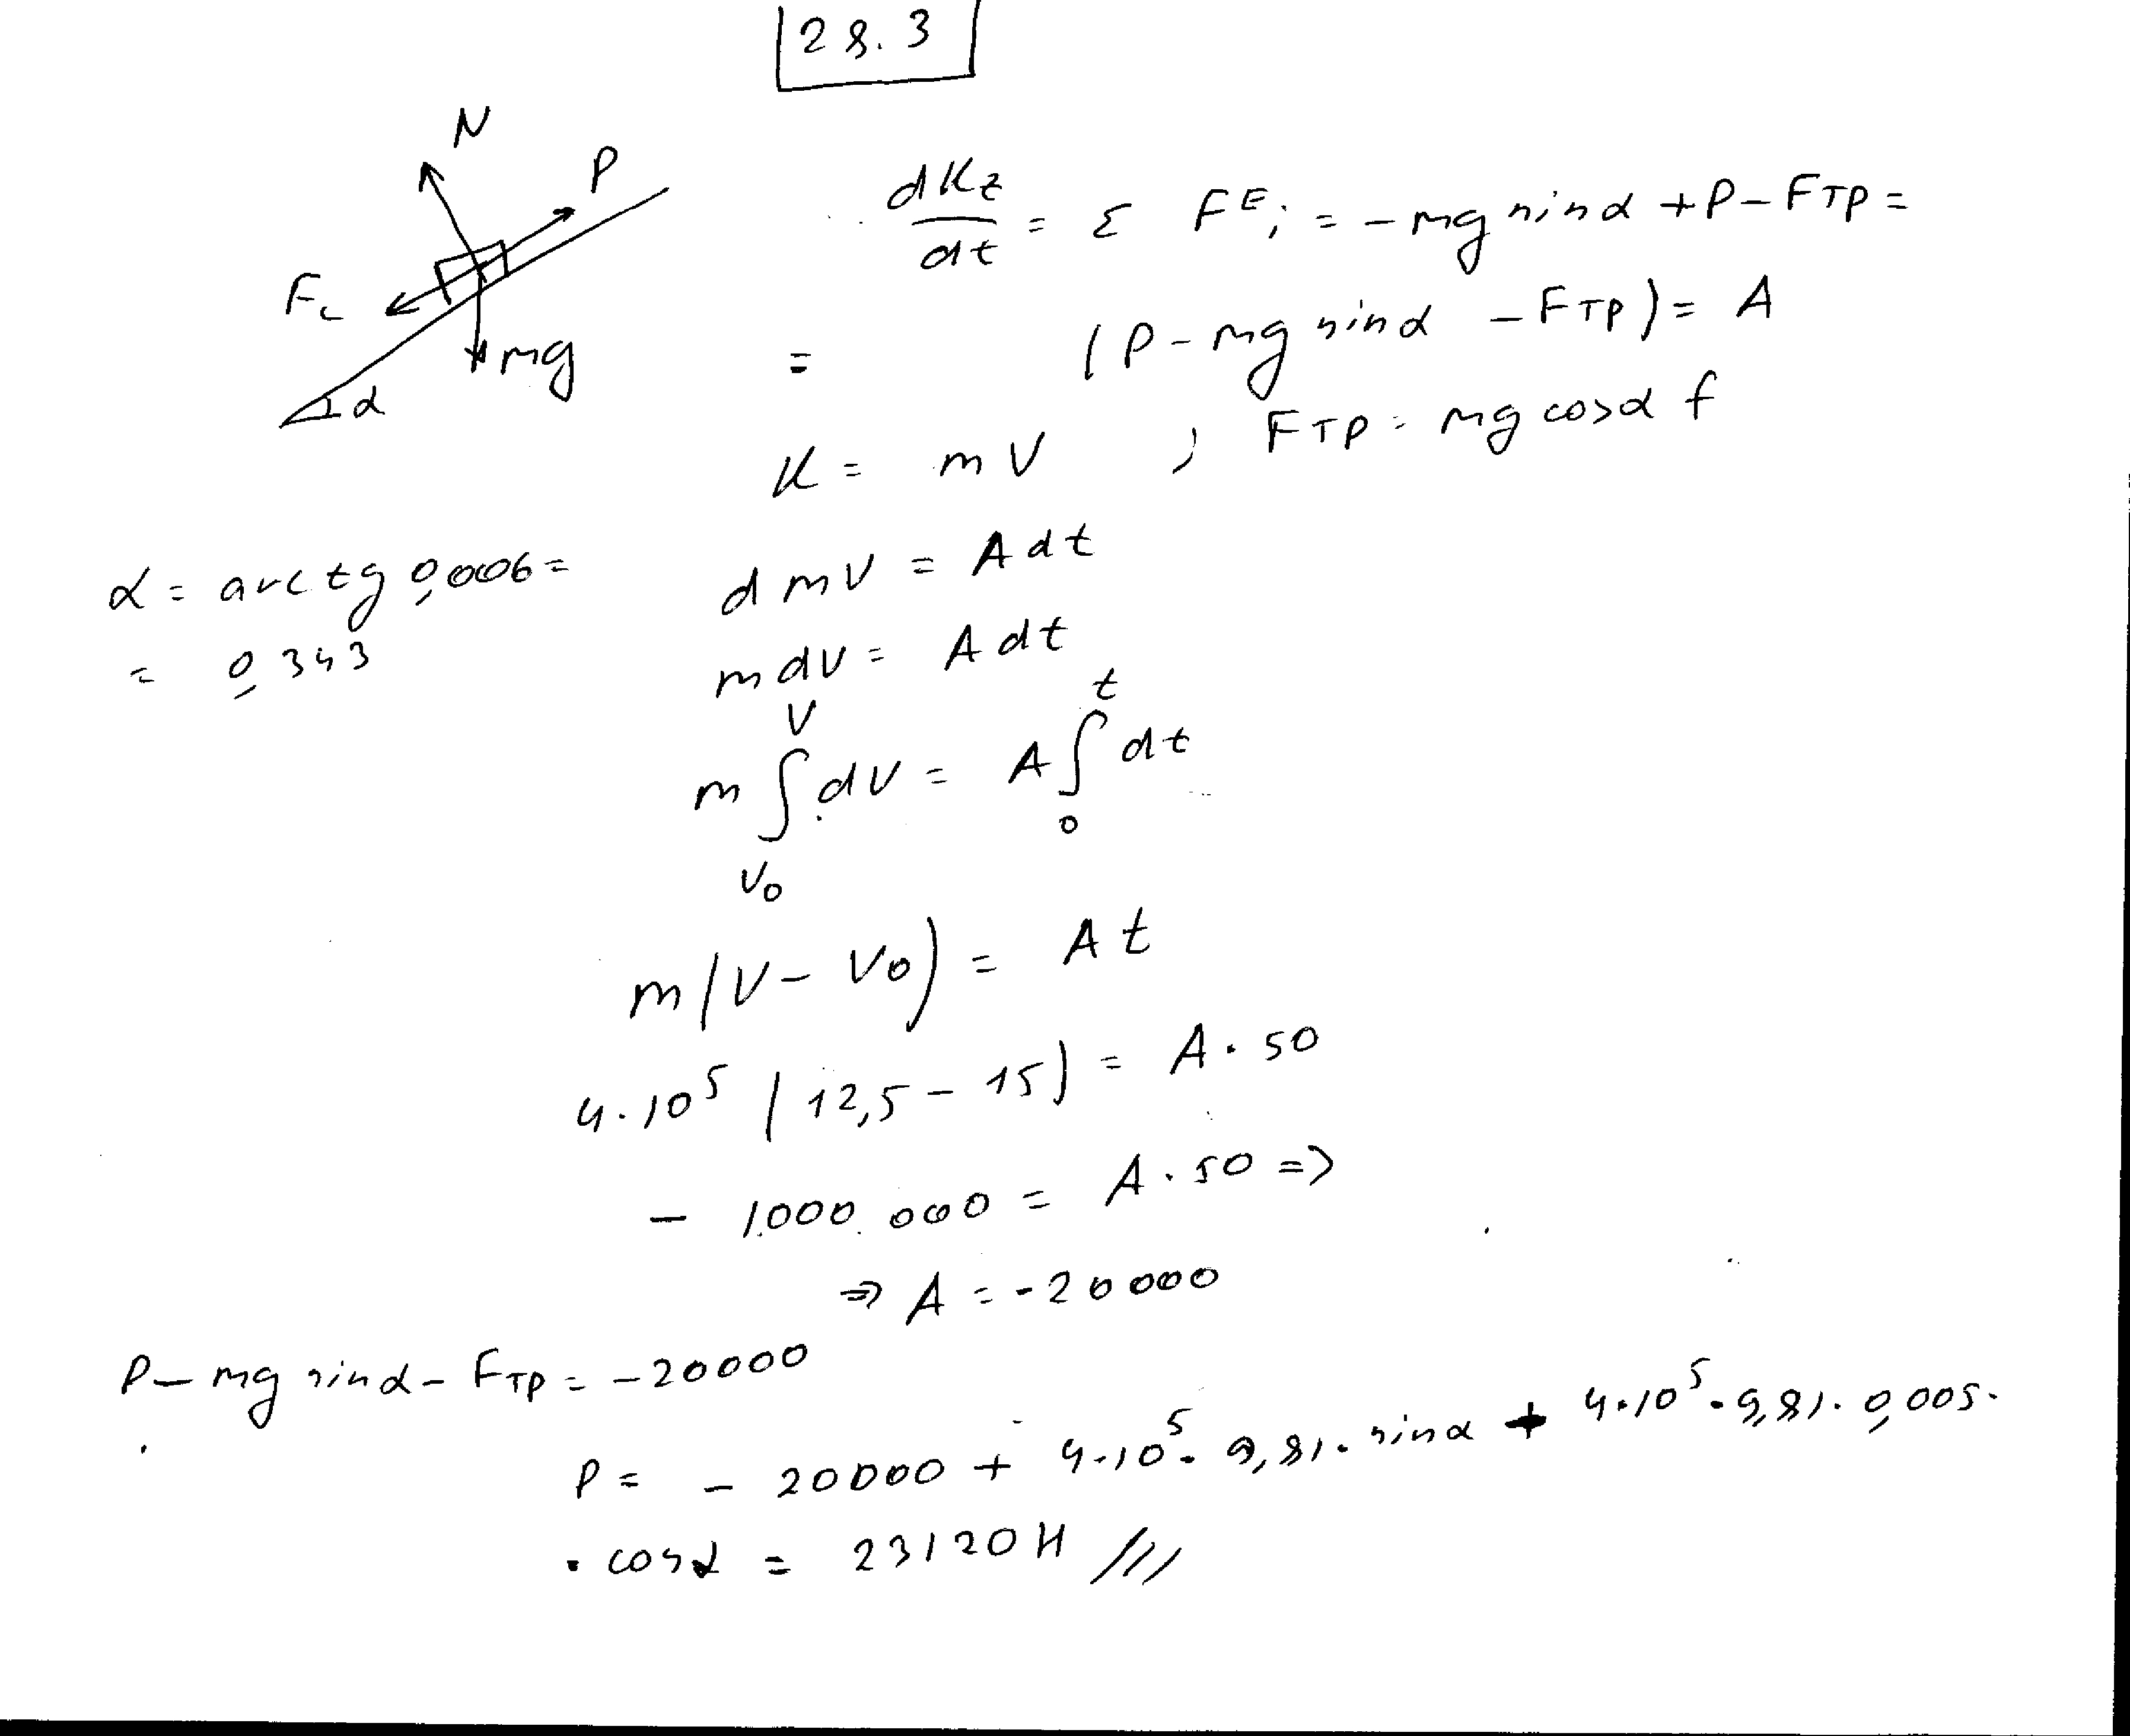 28.3
N
P
Fc
mg
α
dKz/dt = Σ F^E_i = - mg sinα + P - Fтр =
= (P - mg sinα - Fтр) = A
K = mV ; Fтр = mg cosα f
α = arctg 0,006 =
= 0,343
d mV = A dt
m dV = A dt
m ∫_{V0}^{V} dV = A ∫_{0}^{t} dt
m(V - V0) = A t
4·10^5 (12,5 - 15) = A · 50
- 1.000.000 = A · 50 =>
=> A = -20000
P - mg sinα - Fтр = -20000
P = - 20000 + 4·10^5 · 9,81 · sinα + 4·10^5 · 9,81 · 0,005 ·
· cosα = 23120 Н